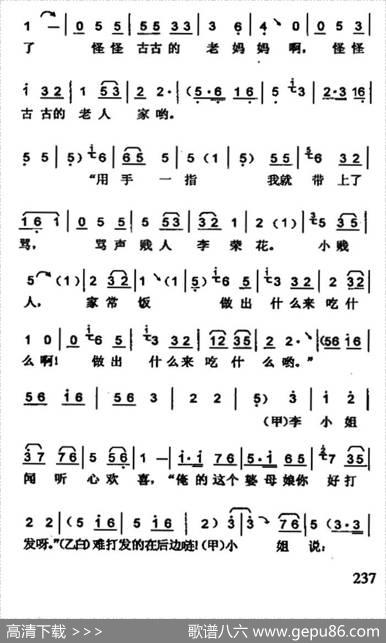 1 — | 0 5 5 | 5 5 5 5 | 3 6 | 4 0 | 0 5 5 |
了 怪怪 古古的 老妈妈 啊, 怪怪
i 3 2 | 1 5 3 | 2 2· | (5·6 1 6 | 5 i 3 | 2·3 1 6 |
古古的 老人 家哟。
5 5 | 5) i 6 | 6 5 5 | 5 (1 | 5) | 5 5 | i 6 3 2 |
“用手 一指 我就 带上了
1 6 1 | 0 5 5 | 5 5 3 | 3 2 1 | 2 (1) | 3 5 3 5 |
骂, 骂声贱人 李荣花。 小贱
5 (1) | 2 3 2 | 1 (1 | 5) i 6 5 | i 3 3 2 | 2 3 2 |
人, 家常饭 做出 什么来吃什
1 0 | 0 i 6 | i 3 3 2 | 1 2 3 5 | 2 2· | (5 6 i 6 |
么啊! 做出 什么来吃什么哟。”
5 6 i 6 | 5 6 3 | 2 2 | 5) 3 | i 2 |
(甲)李 小姐
3 7 7 6 | 5 5 6 | 1 — | i·i 7 6 | 5·i 6 5 | 6 7 3 5 |
闻听心欢喜,“俺的这个婆母娘你好打
2 2 | (5 i 6 | 5 i 6 | 2) 3 | 3 7 6 | 5 (3·3 |
发呀。”(乙白)难打发的在后边哒!(甲)小 姐说:
237
高清下载 >>>
歌谱八六 www.gepu86.com